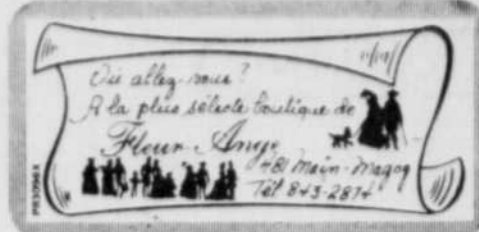 Où allez-vous?
A la plus sélecte boutique de
Fleur Ange
481 Main - Magog
Tél 843-2874